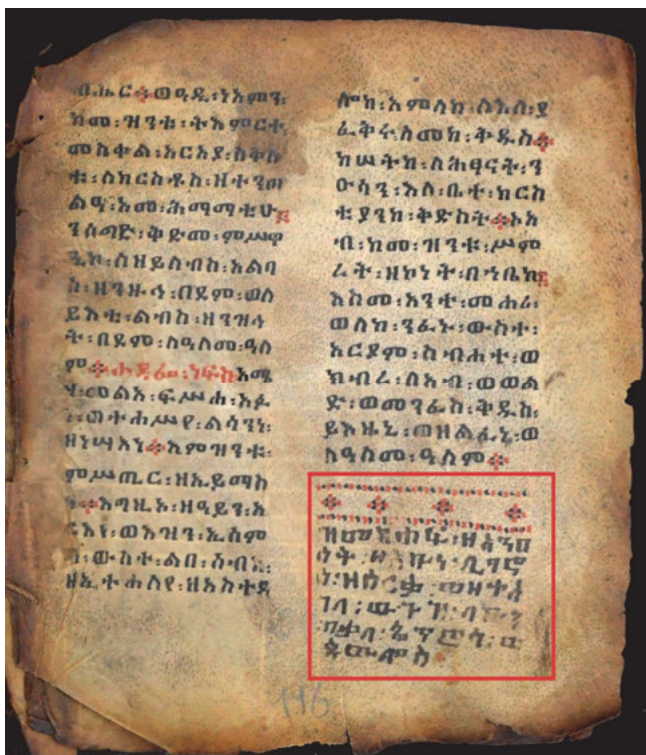 ብሔር፨ወዓዲ፡ነአምን፡
ከመ፡ዝንቱ፡ትእምርተ
መስቀል፡አርአያ፡ስቅለ
ቱ፡ለክርስቶስ፡
አመ፡ሕማማቲሁ፤
ንሰግድ፡ቅድመ፡ምሥዋ
ዒኮ፡ለዘይለብስ፡አልባ
ሰ፡ዘንዙኅ፡በደም፡ወለ
ይእቲ፡ልብስ፡ዘንዝኅ
ት፡በደም፡ለዓለመ፡ዓለ
ም፨ሐዳፌ፡ነፍስ፡አሜ
ሃ፡መልአ፡ፍሥሐ፡አፉ
ነ፡ወተሐሥየ፡ልሳንነ፡
ዘነሣእነ፨እምዝንቱ፡
ምሥጢር፡ዘኢይማስ
ን፨እግዚኦ፡ዘዓይን፡ኢ
ርእየ፡ወእዝን፡ኢሰም
ዐ፡ውስተ፡ልበ፡ሰብእ፡
ዘኢተሐለየ፡ዘአስተዳ
ሎከ፡አምላክ፡ለእለ፡ያ
ፈቅሩ፡ስመከ፡ቅዱስ፨
ከሠትከ፡ለሕፃናት፡ን
ዑሳን፡እለ፡ቤተ፡ክርስ
ቲያንከ፡ቅድስት፨ኦአ
ብ፡ከመ፡ዝንቱ፡ሥም
ረት፡ዘኮነት፡በኀቤከ፤
እስመ፡አንተ፡መሐሪ፡
ወለከ፡ንፌኑ፡ውስተ፡
አርያም፡ስብሐተ፡ወ
ክብረ፡ለአብ፡ወወል
ድ፡ወመንፈስ፡ቅዱስ፡
ይእዜኒ፡ወዘልፈኒ፡ወ
ለዓለመ፡ዓለም፨
ዝመጽሐፍ፡
ጴጥሮስ፡ወ
ጳውሎስ
116